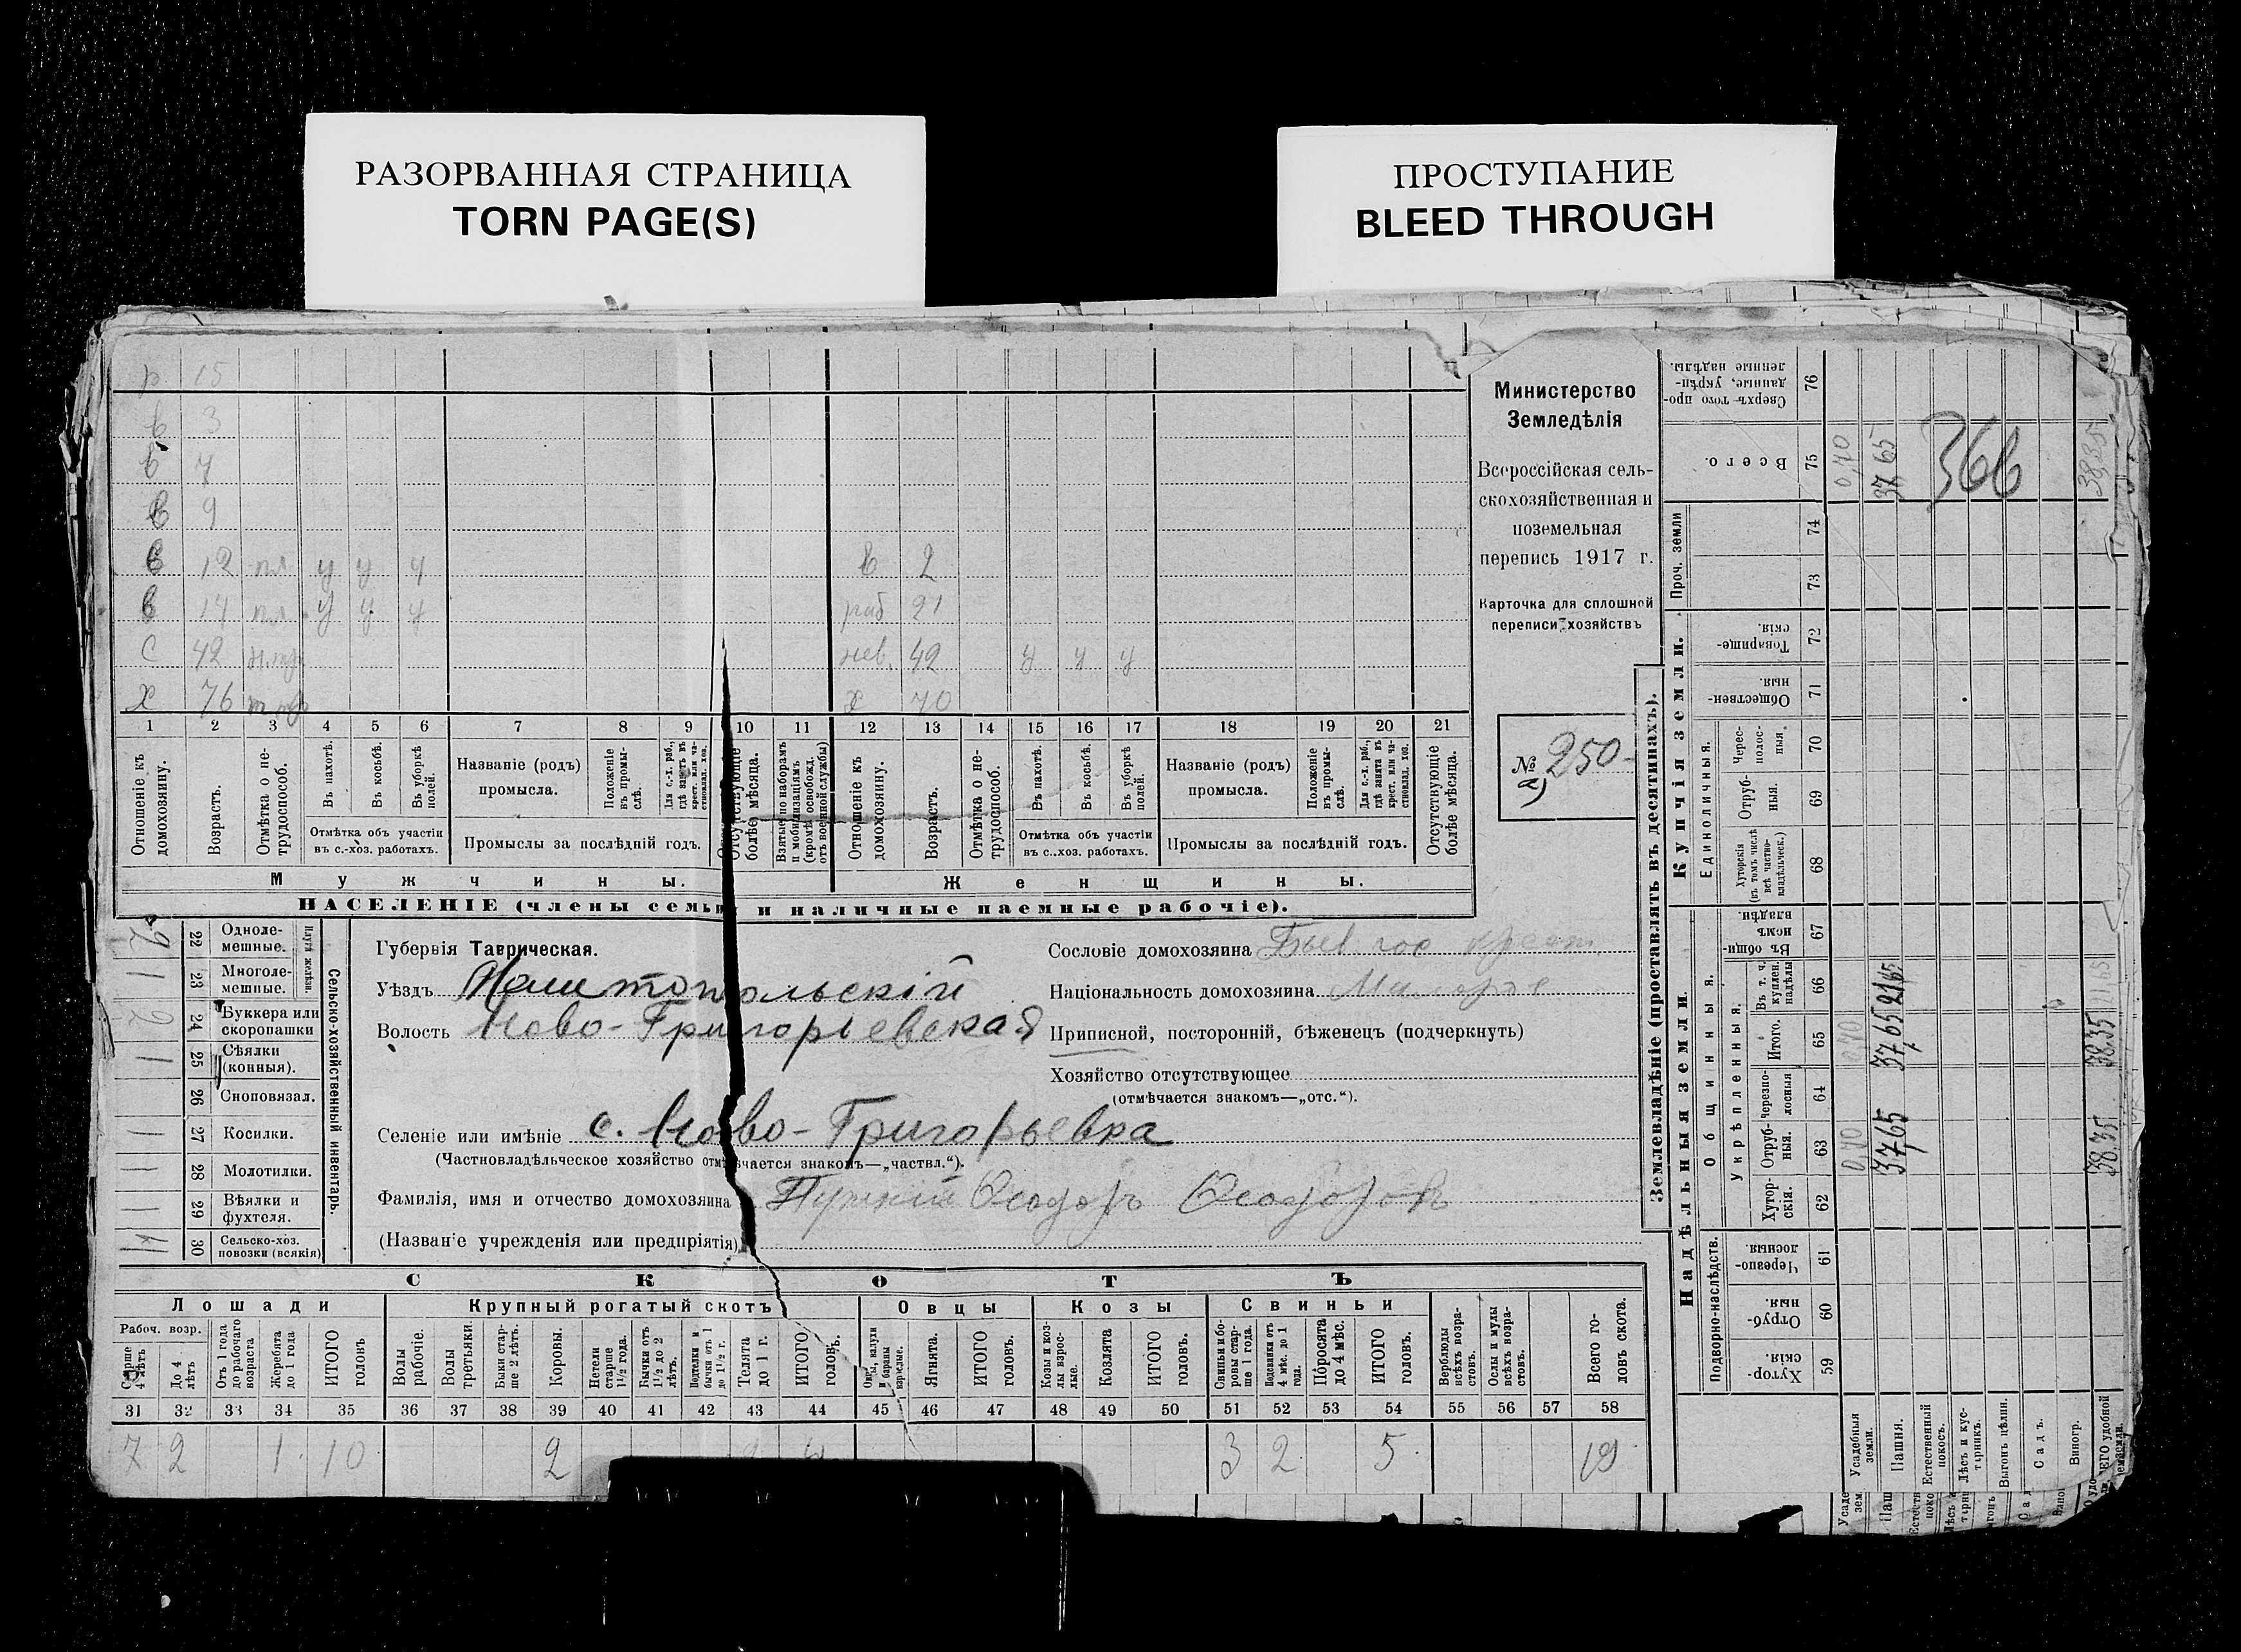 РАЗОРВАННАЯ СТРАНИЦА
TORN PAGE(S)
ПРОСТУПАНИЕ
BLEED THROUGH
р 15
в 3
в 7
в 9
в 12 пл у у у
в 2
в 14 пл у у у
раб 21
с 42
нев. 42 у у у
х 76
х 70
1 2 3 4 5 6 7 8 9 10 11 12 13 14 15 16 17 18 19 20 21
Отношеніе къ домохозяину.
Возрастъ.
Отмѣтка о не-трудоспособ.
Въ пахотѣ.
Въ косьбѣ.
Въ уборкѣ полей.
Отмѣтка объ участіи
въ с.-хоз. работахъ.
Названіе (родъ)
промысла.
Положеніе въ промы-слѣ.
Для с.-х. раб., гдѣ занятъ въ крест. или ча-стновлад. хоз.
Промыслы за послѣдній годъ.
Отсутствующіе болѣе мѣсяца.
Взятые по наборамъ и мобилизаціямъ (кромѣ освобожд. отъ военной службы)
Отношеніе къ домохозяину.
Возрастъ.
Отмѣтка о не-трудоспособ.
Въ пахотѣ.
Въ косьбѣ.
Въ уборкѣ полей.
Отмѣтка объ участіи
въ с.-хоз. работахъ.
Названіе (родъ)
промысла.
Положеніе въ промы-слѣ.
Для с.-х. раб., гдѣ занята въ крест. или ча-стновлад. хоз.
Промыслы за послѣдній годъ.
Отсутствующіе болѣе мѣсяца.
Мужчины.
Женщины.
НАСЕЛЕНІЕ (члены семьи и наличные наемные рабочіе).
Министерство
Земледѣлія
Всероссійская сель-
скохозяйственная и
поземельная
перепись 1917 г.
Карточка для сплошной
переписи хозяйствъ
№ 250
а)
2 22 Одноле-мешные.
1 23 Многоле-мешные.
Плуги желѣзн.
2 24 Буккера или скоропашки
1 25 Сѣялки (конныя).
26 Сноповязал.
1 27 Косилки.
1 28 Молотилки.
1 29 Вѣялки и фухтеля.
30 Сельско-хоз. повозки (всякія)
Сельско-хозяйственный инвентарь.
Губернія Таврическая.
Уѣздъ Мелитопольскій
Волость Ново-Григорьевская
Селеніе или имѣніе с. Ново-Григорьевка
(Частновладѣльческое хозяйство отмѣчается знакомъ—„частвл.“).
Фамилія, имя и отчество домохозяина Феодоръ Феодоров
(Названіе учрежденія или предпріятія)
Сословіе домохозяина Быв. гос. крест
Національность домохозяина
Приписной, посторонній, бѣженецъ (подчеркнуть)
Хозяйство отсутствующее
(отмѣчается знакомъ—„отс.“).
СКОТЪ
Лошади
Крупный рогатый скотъ
Овцы
Козы
Свиньи
Рабоч. возр.
Старше 4 лѣтъ
До 4 лѣтъ
Отъ 1 года до рабочаго возраста
Жеребята до 1 года
ИТОГО головъ
Волы рабочіе.
Волы третьяки.
Быки стар-ше 2 лѣтъ.
Коровы.
Нетели старше 1½ года.
Бычки отъ 1½ до 2 лѣтъ.
Подтелки и бычки отъ 1 до 1½ г.
Телята до 1 г.
ИТОГО головъ.
Овцы, валухи и бараны взрослые.
Ягнята.
ИТОГО головъ.
Козы и коз-лы взрос-лые.
Козлята
ИТОГО головъ.
Свиньи и бо-ровы стар-ше 1 года.
Подсвинки отъ 4 мѣс. до 1 года.
Поросята до 4 мѣс.
ИТОГО головъ.
Верблюды всѣхъ возра-стовъ.
Ослы и мулы всѣхъ возра-стовъ.
Всего го-ловъ скота.
31 32 33 34 35 36 37 38 39 40 41 42 43 44 45 46 47 48 49 50 51 52 53 54 55 56 57 58
7 2 1 10 2 3 2 5 19
Землевладѣніе (проставлять въ десятинахъ).
Надѣльныя земли.
Купчія земли.
Проч. земли
Подворно-наслѣдств.
Общинныя.
Укрѣпленныя.
Единоличныя.
Хутор-скія. 59
Отруб-ныя. 60
Черезпо-лосныя 61
Хутор-скія. 62
Отруб-ныя. 63
Черезпо-лосныя 64
Итого. 65
Въ т. ч. куплен. надѣлы 66
Въ общин-номъ владѣн. 67
Хуторскія (въ томъ числѣ всѣ частно-владѣльческ.) 68
Отруб-ныя. 69
Черес-полос-ныя 70
Обществен-ныя. 71
Товарище-скія. 72
73
74
Всего. 75
Сверхъ того про-данные, укрѣп-ленные надѣлы. 76
Усадебныя земли.
0,40 0,40 0,40
Пашня.
37,65 37,65 21,65 37 65
Естественный покосъ.
Лѣсъ и кус-тарникъ.
Выгонъ цѣлин.
Садъ.
Виногр.
38.35 38.35 21,65 38,35
366